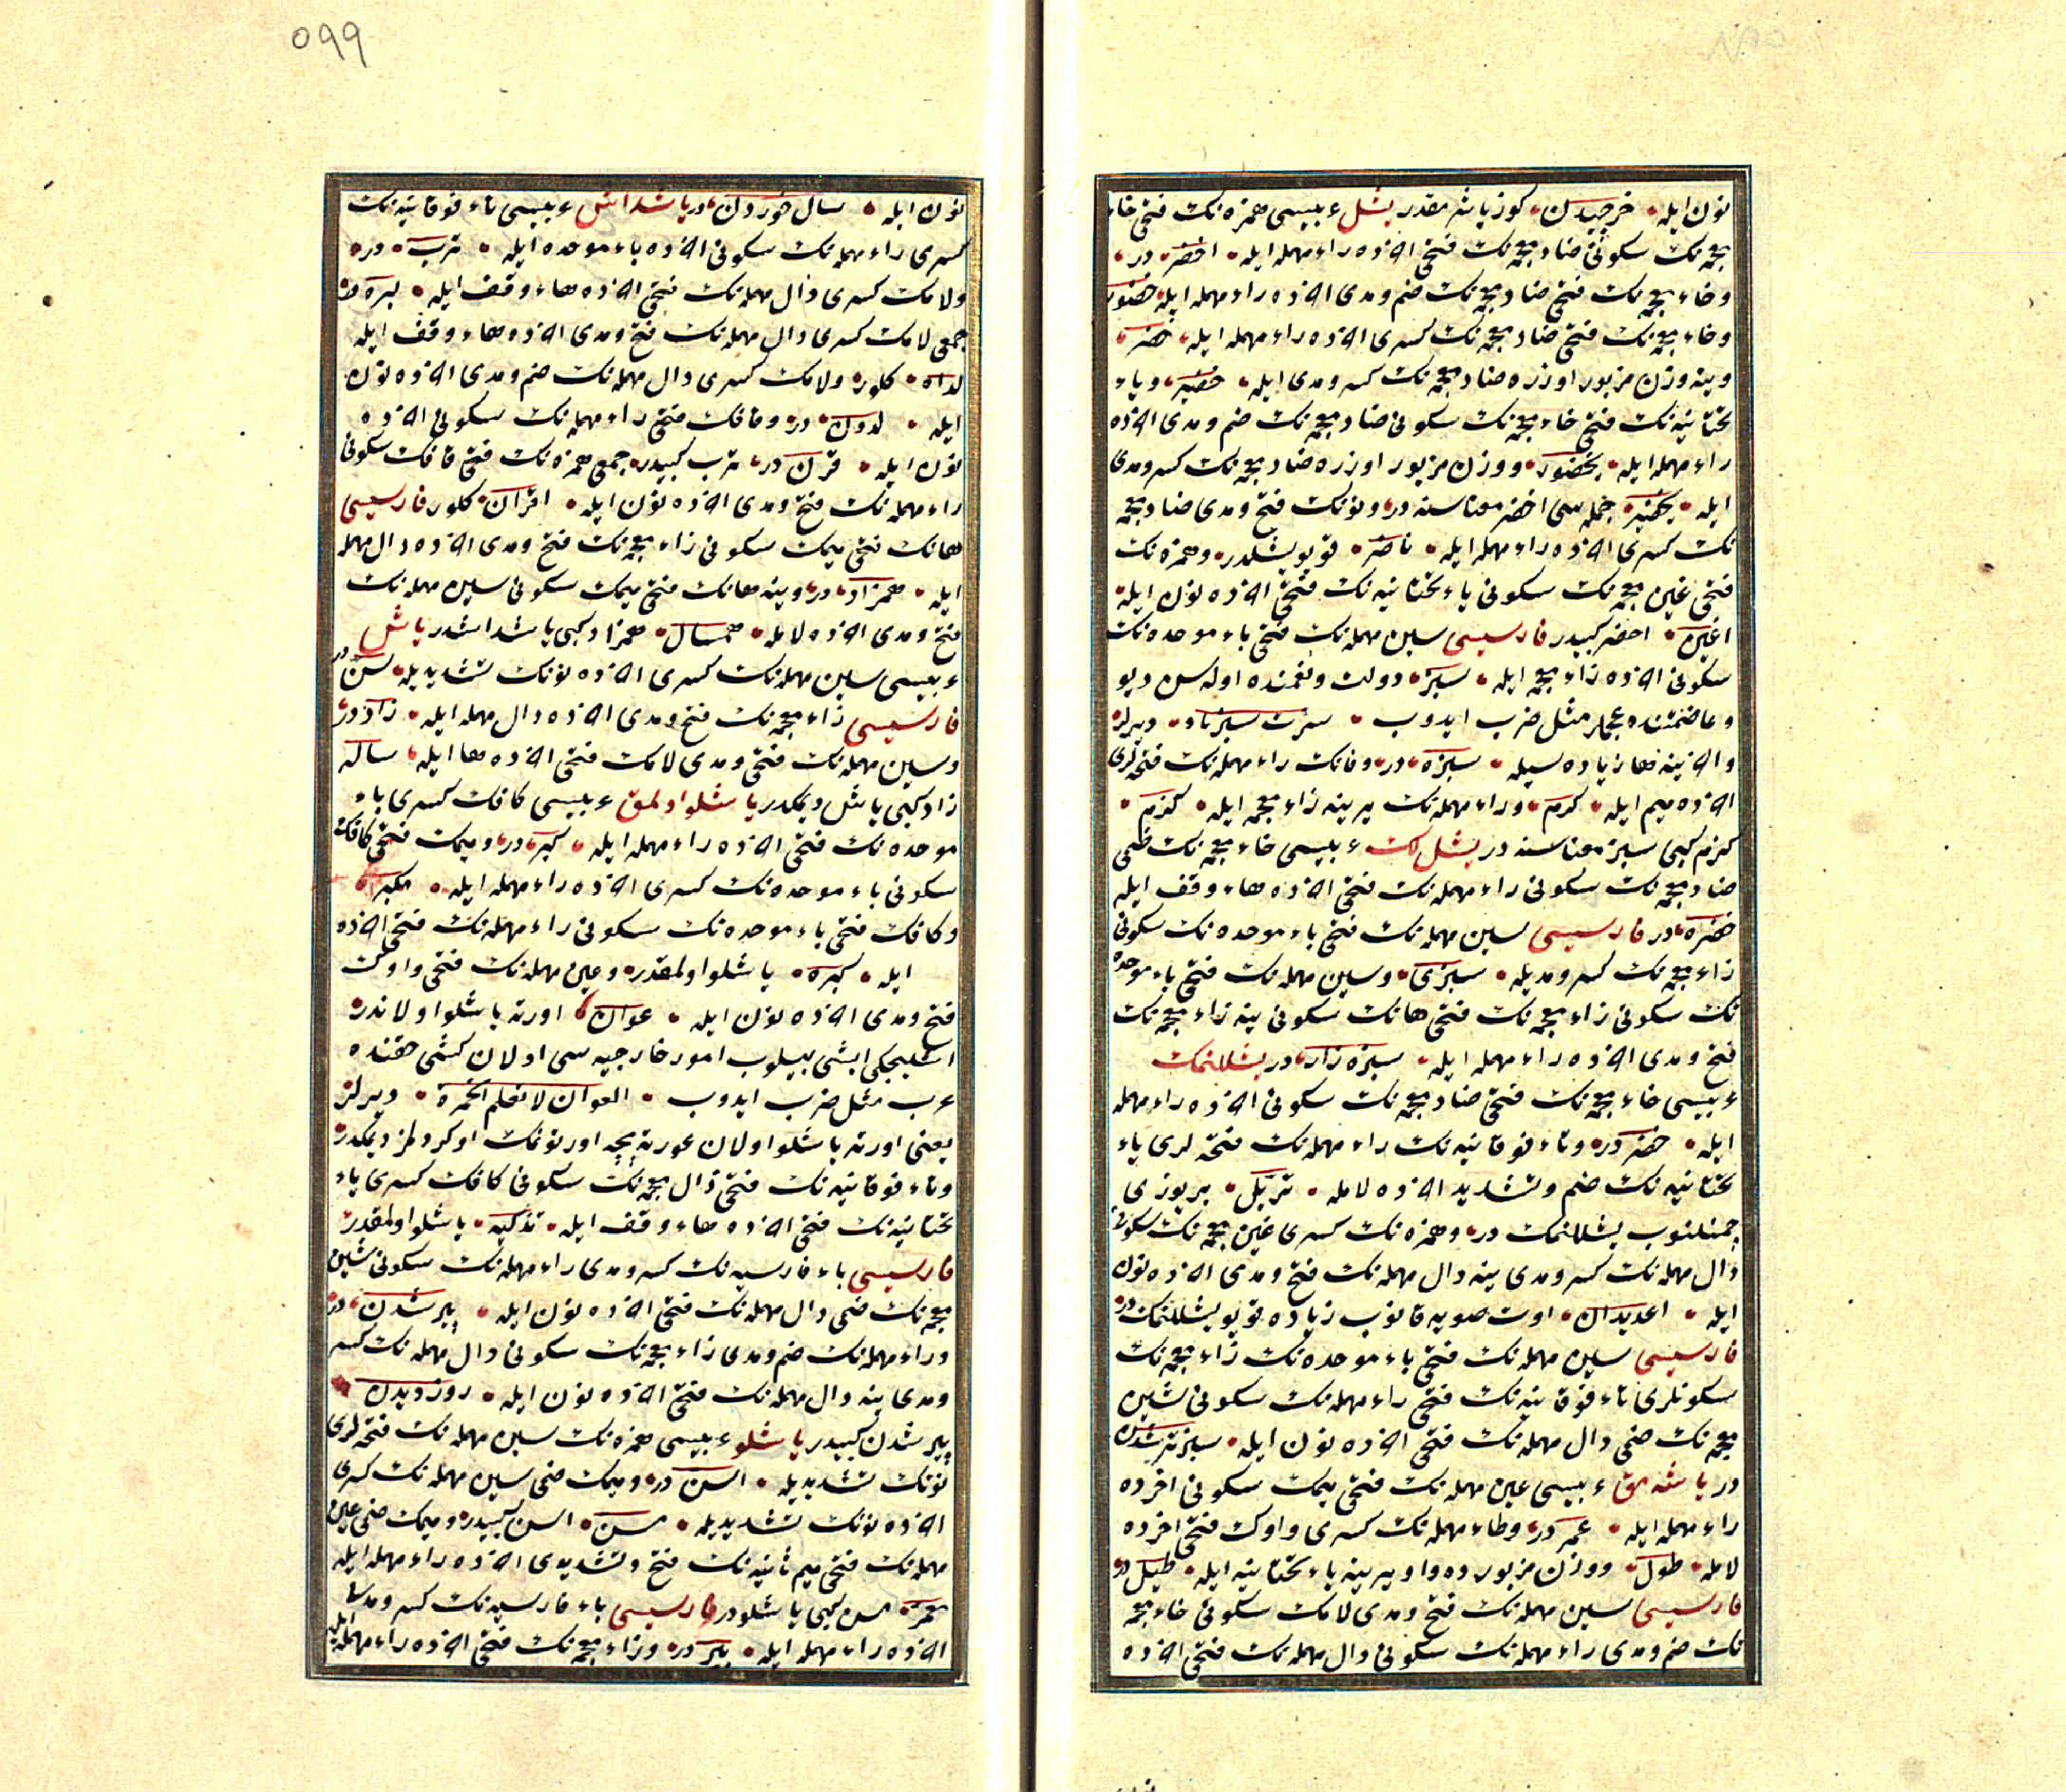 نون ایله خرجیدن کوز یاشر مقدر یشل عربیسی همزه‌نک فتحی خاء
معجمه‌نک سکونی ضاد معجمه‌نک فتحی اخرده راء مهمله ایله اخضر در
و خاء معجمه‌نک فتحی ضاد معجمه‌نک ضم و مدی اخرده راء مهمله ایله خضور
و خاء معجمه‌نک فتحی ضاد معجمه‌نک کسری اخرده راء مهمله ایله خضر
و ینه وزن مزبور اوزره ضاد معجمه‌نک کسر و مدی ایله خضیر و یاء
تحتانیه‌نک فتحی خاء معجمه‌نک سکونی ضاد معجمه‌نک ضم و مدی اخرده
راء مهمله ایله یخضور و وزن مزبور اوزره ضاد معجمه‌نک کسر و مدی
ایله یخضیر جمله‌سی اخضر معناسنه در و نونک فتح و مدی ضاد معجمه
نک کسری اخرده راء مهمله ایله ناضر قویو یشلدر و همزه‌نک
فتحی غین معجمه‌نک سکونی یاء تحتانیه‌نک فتحی اخرده نون ایله
اغین اخضر کبیدر فارسیسی سین مهمله‌نک فتحی باء موحده‌نک
سکونی اخرده زاء معجمه ایله سبز دولت و نعمنده اوله‌سن دیو
و عا ضمننده عجملر مثل ضرب ایدوب سرت سبز باد دیرلر
و اخرینه ها زیاده‌سیله سبزه در و فانک راء مهمله‌نک فتحه‌لری
اخرده میم ایله کرم و راء مهمله‌نک یرینه زاء معجمه ایله کزم
کزم کبی سبز معناسنه در یشل لک عربیسی خاء معجمه‌نک ضمی
ضاد معجمه‌نک سکونی راء مهمله‌نک فتحی اخرده هاء وقف ایله
خضره در فارسیسی سین مهمله‌نک فتحی باء موحده‌نک سکونی
زاء معجمه‌نک کسر و مدیله سبزی و سین مهمله‌نک فتحی باء موحده
نک سکونی زاء معجمه‌نک فتحی هانک سکونی ینه زاء معجمه‌نک
فتح و مدی اخرده راء مهمله ایله سبزه زار در یشللنمک
عربیسی خاء معجمه‌نک فتحی ضاد معجمه‌نک سکونی اخرده راء مهمله
ایله خضر در و تاء فوقانیه‌نک راء مهمله‌نک فتحه لری یاء
تحتانیه‌نک ضم و تشدید اخرده لامله تریل یر یوزی
چمنلنوب یشللنمک در و همزه‌نک کسری غین معجمه‌نک سکونی
دال مهمله‌نک کسر و مدی ینه دال مهمله‌نک فتح و مدی اخرده نون
ایله اغدیدان اوت صویه قانوب زیاده قویو یشللنمک در
فارسیسی سین مهمله‌نک فتحی باء موحده‌نک زاء معجمه‌نک
سکونلری تاء فوقانیه‌نک فتحی راء مهمله‌نک سکونی شین
معجمه‌نک ضمی دال مهمله‌نک فتحی اخرده نون ایله سبزتر شدن
در یاشه مق عربیسی عین مهمله‌نک فتحی میمک سکونی اخرده
راء مهمله ایله عمر در و طاء مهمله‌نک کسری واوک فتحی اخرده
لامله طول و وزن مزبورده واو یرینه یاء تحتانیه ایله طیل در
فارسیسی سین مهمله‌نک فتح و مدی لامک سکونی خاء معجمه
نک ضم و مدی راء مهمله‌نک سکونی دال مهمله‌نک فتحی اخرده
٥٩٩
نون ایله سال خوردن در یاشداش عربیسی تاء فوقانیه‌نک
کسری راء مهمله‌نک سکونی اخرده باء موحده ایله ترب در
و لامک کسری دال مهمله‌نک فتحی اخرده هاء وقف ایله لده در
جمعی لامک کسری دال مهمله‌نک فتح و مدی اخرده هاء وقف ایله
لداه کلور و لامک کسری دال مهمله‌نک ضم و مدی اخرده نون
ایله لدون در و قافک فتحی راء مهمله‌نک سکونی اخرده
نون ایله قرن در ترب کبیدر جمعی همزه‌نک فتحی قافک سکونی
راء مهمله‌نک فتح و مدی اخرده نون ایله اقران کلور فارسیسی
هانک فتحی میمک سکونی زاء معجمه‌نک فتح و مدی اخرده دال مهمله
ایله همزاد در و ینه هانک فتحی میمک سکونی سین مهمله‌نک
فتح و مدی اخرده لامله همسال همزاد کبی یاشداشدر یاش
عربیسی سین مهمله‌نک کسری اخرده نونک تشدیدیله سن در
فارسیسی زاء معجمه‌نک فتح و مدی اخرده دال مهمله ایله زاد در
و سین مهمله‌نک فتحی و مدی لامک فتحی اخرده ها ایله ساله
زاد کبی یاشل دیمکدر یاشلو اولمق عربیسی کافک کسری باء
موحده‌نک فتحی اخرده راء مهمله ایله کبر در و میمک فتحی کافک
سکونی باء موحده‌نک کسری اخرده راء مهمله ایله مکبر
و کافک فتحی باء موحده‌نک سکونی راء مهمله‌نک فتحی اخرده
ایله کبره یاشلو اولمقدر و عین مهمله‌نک فتحی واوک
فتح و مدی اخرده نون ایله عوان اورته یاشلو اولاندر
اشلیجکی ایشی بیلوب امور خارجیه‌سی اولان کشی حقنده
عرب مثل ضرب ایدوب العوان لا تعلم الخمرة دیرلر
یعنی اورته یاشلو اولان عورته یچه اورتونمک اوکرد لمز دیمکدر
و تاء فوقانیه‌نک فتحی ذال معجمه‌نک سکونی کافک کسری یاء
تحتانیه‌نک فتحی اخرده هاء وقف ایله تذکیه یاشلو اولمقدر
فارسیسی باء فارسیه‌نک کسر و مدی راء مهمله‌نک سکونی شین
معجمه‌نک ضمی دال مهمله‌نک فتحی اخرده نون ایله پیر شدن در
و راء مهمله‌نک ضم و مدی زاء معجمه‌نک سکونی دال مهمله‌نک کسر
و مدی ینه دال مهمله‌نک فتحی اخرده نون ایله روز دیدن
پیر شدن کبیدر یاشلو عربیسی همزه‌نک سین مهمله‌نک فتحه لری
نونک تشدیدیله اسن در و میمک ضمی سین مهمله‌نک کسری
اخرده نونک تشدیدیله مسن اسن کبیدر و میمک ضمی عین
مهمله‌نک فتحی میم ثانیه‌نک فتح و تشدیدی اخرده راء مهمله ایله
معمر مسن کبی یاشلودر فارسیسی باء فارسیه‌نک کسر و مدی
اخرده راء مهمله ایله پیر در و زاء معجمه‌نک فتحی اخرده راء مهمله ایله